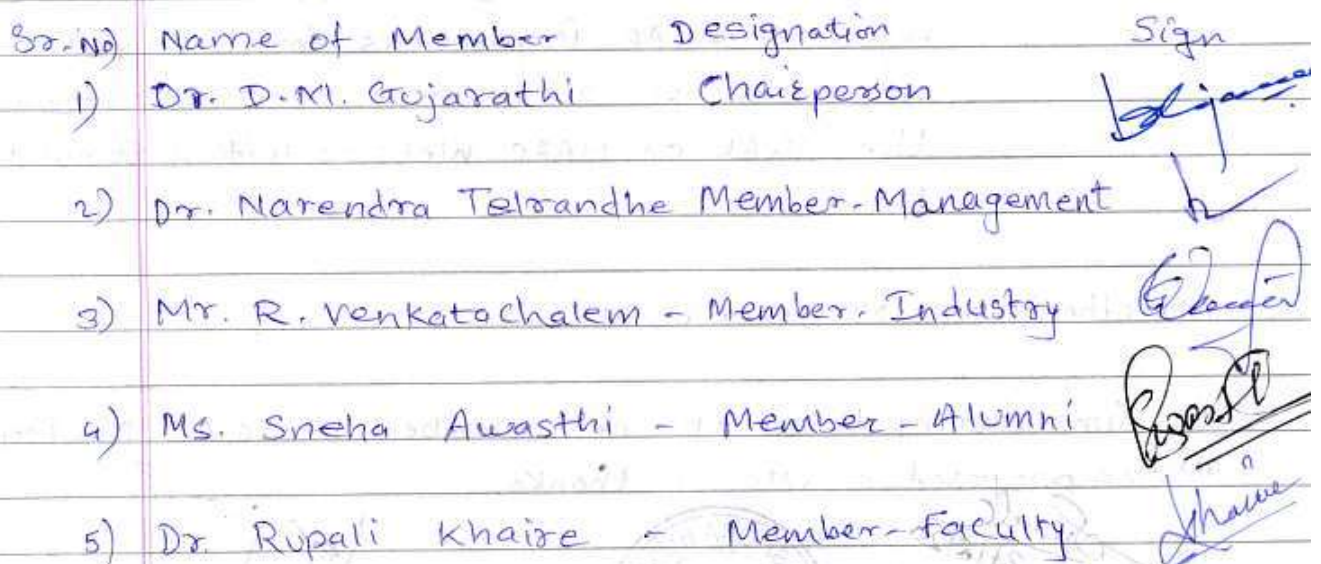 Sr.No) Name of Member Designation Sign
1) Dr. D.M. Gujarathi Chairperson
2) Dr. Narendra Telrandhe Member-Management
3) Mr. R. Venkatachalem - Member. Industry
4) Ms. Sneha Awasthi - Member - Alumni
5) Dr. Rupali Khaire - Member-Faculty